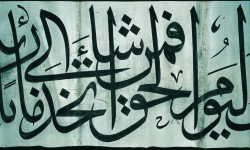 اليوم الحق فمن شاء اتخذ الى مآبا